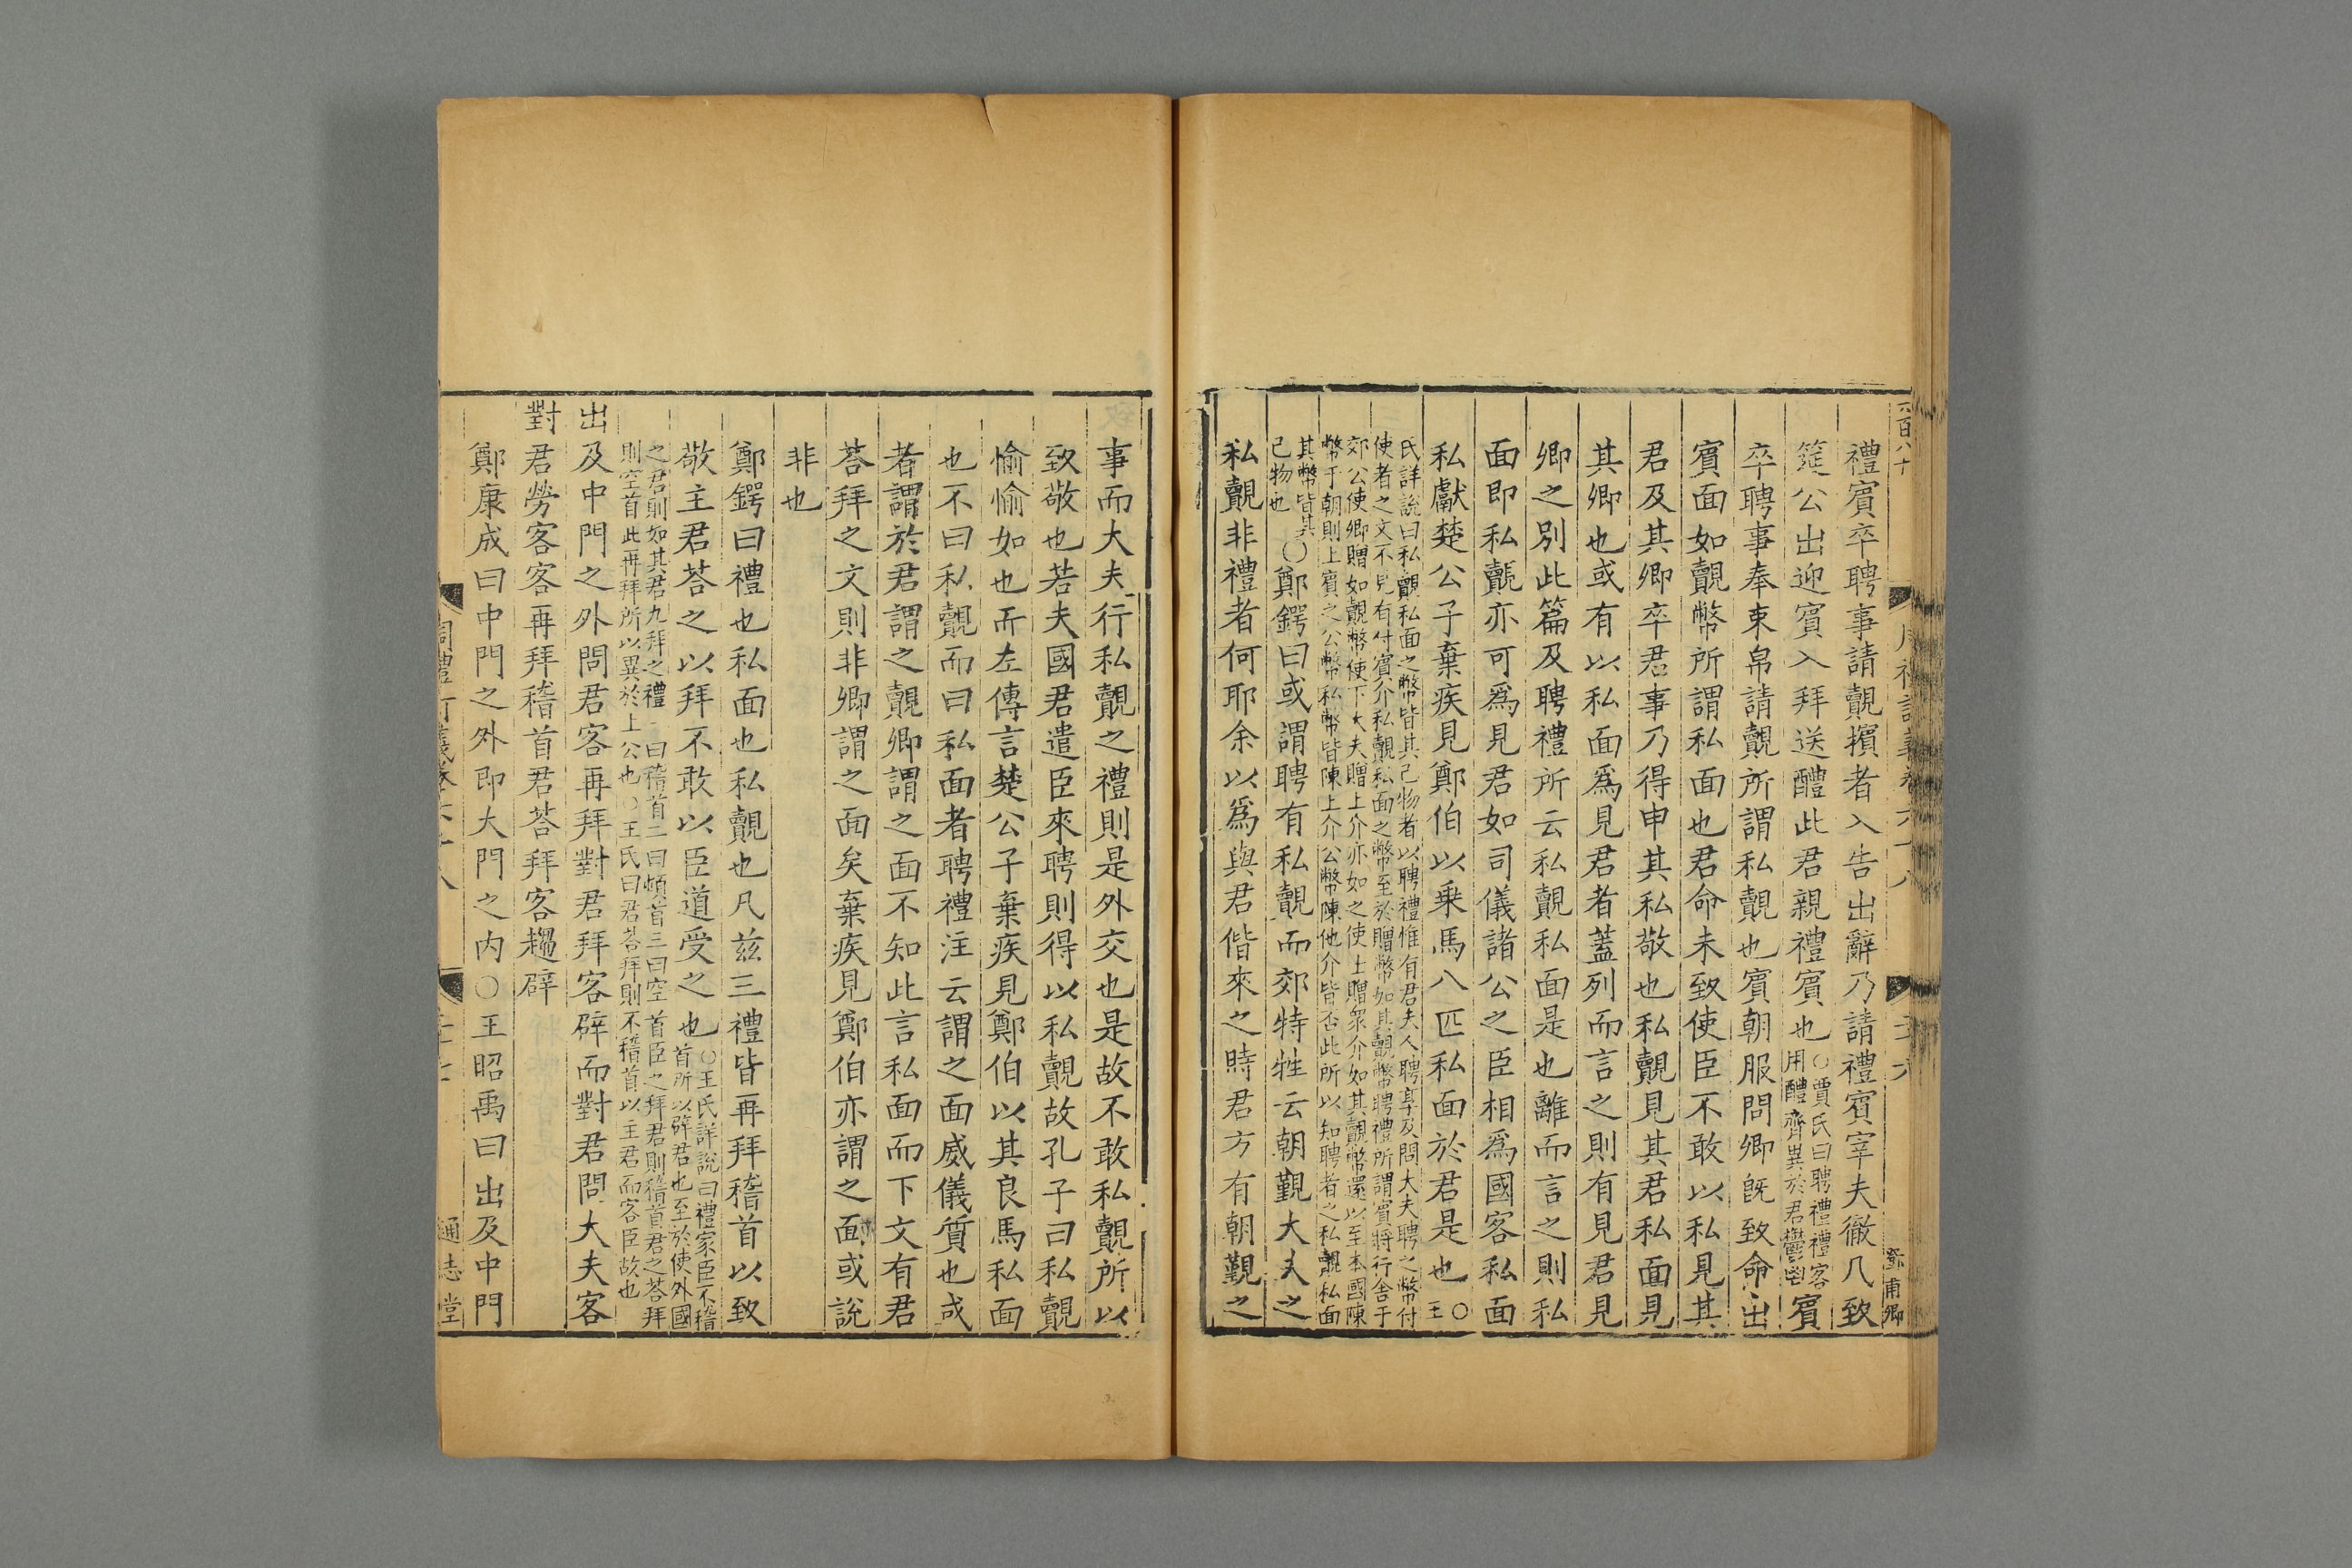 禮賓卒聘事請覿擯者入告出辭乃請禮賓宰夫徹几致
筵公出迎賓入拜送醴此君親禮賓也○賈氏曰聘禮禮客用醴齊異於君鬱鬯賓
卒聘事奉束帛請覿所謂私覿也賓朝服問卿旣致命出
賓面如覿幣所謂私面也君命未致使臣不敢以私見其
君及其卿卒君事乃得申其私敬也私覿見其君私面見
其卿也或有以私面爲見君者蓋列而言之則有見君見
卿之別此篇及聘禮所云私覿私面是也離而言之則私
面即私覿亦可爲見君如司儀諸公之臣相爲國客私面
私獻楚公子棄疾見鄭伯以乗馬八匹私面於君是也○王
氏詳說曰私覿私面之幣皆其己物者以聘禮惟有君夫人聘享及問大夫聘之幣付
使者之文不見有付賓介私覿私面之幣至於贈幣如其覿幣聘禮所謂賓將行舍于
郊公使卿贈如覿幣使下大夫贈上介亦如之使士贈衆介如其覿幣還以至本國陳
幣于朝則上賓之公幣私幣皆陳上介公幣陳他介皆否此所以知聘者之私覿私面
其幣皆其己物也○鄭鍔曰或謂聘有私覿而郊特牲云朝覲大夫之
私覿非禮者何耶余以爲與君偕來之時君方有朝覲之
六百八十
六十八
三十六
鄧甫卿
事而大夫行私覿之禮則是外交也是故不敢私覿所以
致敬也若夫國君遣臣來聘則得以私覿故孔子曰私覿
愉愉如也而左傳言楚公子棄疾見鄭伯以其良馬私面
也不曰私覿而曰私面者聘禮注云謂之面威儀質也或
者謂於君謂之覿卿謂之面不知此言私面而下文有君
荅拜之文則非卿謂之面矣棄疾見鄭伯亦謂之面或說
非也
鄭鍔曰禮也私面也私覿也凡兹三禮皆再拜稽首以致
敬主君荅之以拜不敢以臣道受之也○王氏詳說曰禮家臣不稽首所以辟君也至於使外國
之君則如其君九拜之禮一曰稽首二曰頓首三曰空首臣之拜君則稽首君之荅拜
則空首此再拜所以異於上公也○王氏曰君荅拜則不稽首以主君而客臣故也
出及中門之外問君客再拜對君拜客辟而對君問大夫客
對君勞客客再拜稽首君荅拜客趨辟
鄭康成曰中門之外即大門之内○王昭禹曰出及中門
周禮訂義卷六十八
三十七
通志堂